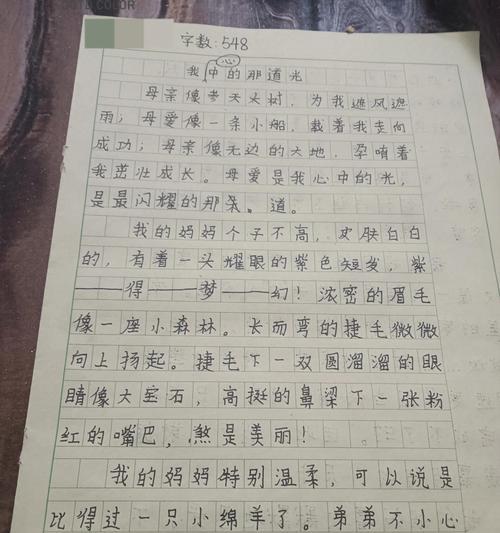 COLOR
字数:548
心
我中的那道光
母亲像参天大树,为我遮风遮
雨;母爱像一条小船,载着我走向
成功;母亲像无边的大地,孕育着
我茁壮成长。母爱是我心中的光,
是最闪耀的那条、道。
我的妈妈个子不高,皮肤白白
的,有着一头耀眼的紫色短发,紫
——得——梦——幻!浓密的眉毛
像一座小森林。长而弯的捷毛微微
向上扬起。捷毛下一双圆溜溜的眼
睛像大宝石,高挺的鼻梁下一张粉
红的嘴巴,煞是美丽!。
我的妈妈特别温柔,可以说是
比得过一只小绵羊了。弟弟不小心